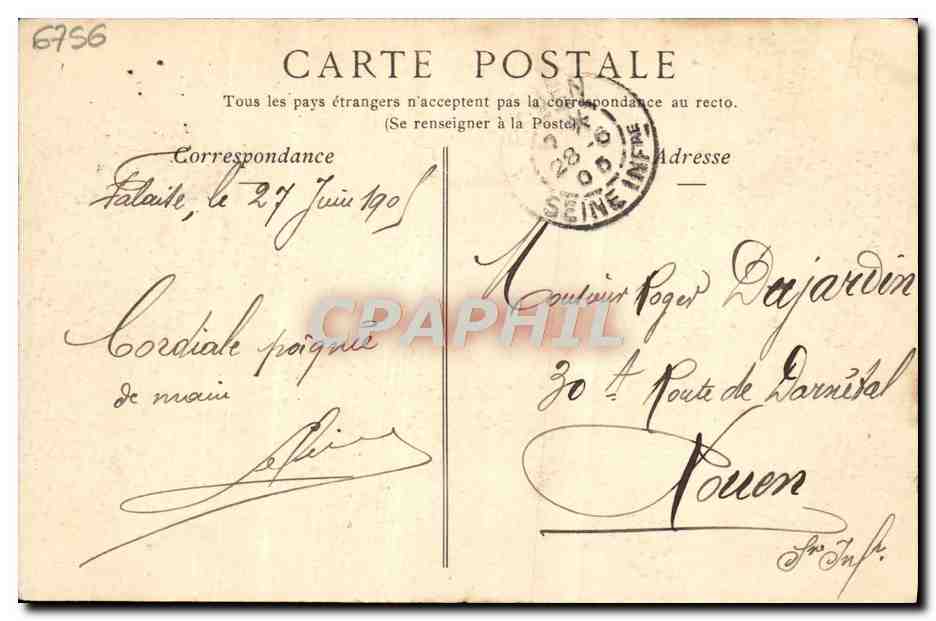 6756
CARTE POSTALE
Tous les pays étrangers n'acceptent pas la correspondance au recto.
(Se renseigner à la Poste)
Correspondance
Falaise, le 27 Juin 1905
Cordiale poignée
de main
Adresse
ROUEN
28 - 6
05
SEINE INFRE
Monsieur Roger Dujardin
30 A Route de Darnétal
Rouen
Sne Infre
CPAPHIL